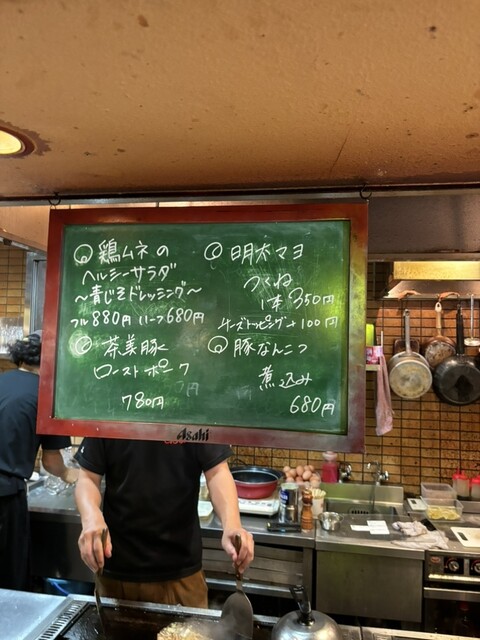 鶏ムネの
ヘルシーサラダ
〜青じそドレッシング〜
フル880円 ハーフ680円
茶美豚
ローストポーク
780円
明太マヨ
つくね
1本350円
チーズトッピング+100円
豚なんこつ
煮込み
680円
Asahi